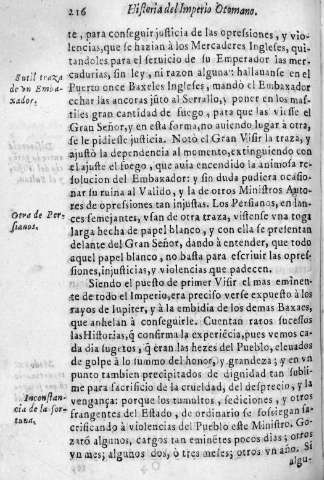 216 Historia del Imperio Otomano.
te, para conseguir justicia de las opresiones, y vio-
lencias, que se hazian à los Mercaderes Ingleses, qui-
tandoles para el seruicio de su Emperador las mer-
cadurias, sin ley, ni razon alguna: hallauanse en el
Sutil traza
de vn Emba-
xador.
Puerto onze Baxeles Ingleses, mandò el Embaxador
echar las ancoras jũto al Serrallo, y poner en los mas-
tiles gran cantidad de fuego, para que las viesse el
Gran Señor, y en esta forma, no auiendo lugar à otra,
se le pidiesse justicia. Notò el Gran Visir la traza, y
ajustò la dependencia al momento, extinguiendo con
el ajuste el fuego, que auia encendido la animosa re-
solucion del Embaxador: y sin duda pudiera ocasio-
nar su ruina al Valido, y la de otros Ministros Auto-
res de opresiones tan injustas. Los Persianos, en lan-
Otra de Per-
sianos.
ces semejantes, vsan de otra traza, vistense vna toga
larga hecha de papel blanco, y con ella se presentan
delante del Gran Señor, dando à entender, que todo
aquel papel blanco, no basta para escriuir las opres-
siones, injusticias, y violencias que padecen.
Siendo el puesto de primer Visir el mas eminen-
te de todo el Imperio, era preciso verse expuesto à los
rayos de Iupiter, y à la embidia de los demas Baxaes,
que anhelan à conseguirle. Cuentan raros sucessos
las Historias, q̃ confirma la experiẽcia, pues vemos ca-
da dia sugetos, q̃ eran las hezes del Pueblo, eleuados
de golpe à lo summo del honor, y grandeza; y en vn
punto tambien precipitados de dignidad tan subli-
me para sacrificio de la crueldad, del desprecio, y la
Inconstan-
cia de la for-
tuna.
vengança: porque los tumultos, sediciones, y otros
frangentes del Estado, de ordinario se sossiegan sa-
crificando à violencias del Pueblo este Ministro. Go-
zarõ algunos, cargos tan eminẽtes pocos dias; otros
vn mes; algunos dos, ò tres meses; otros vn año. Si
algu-